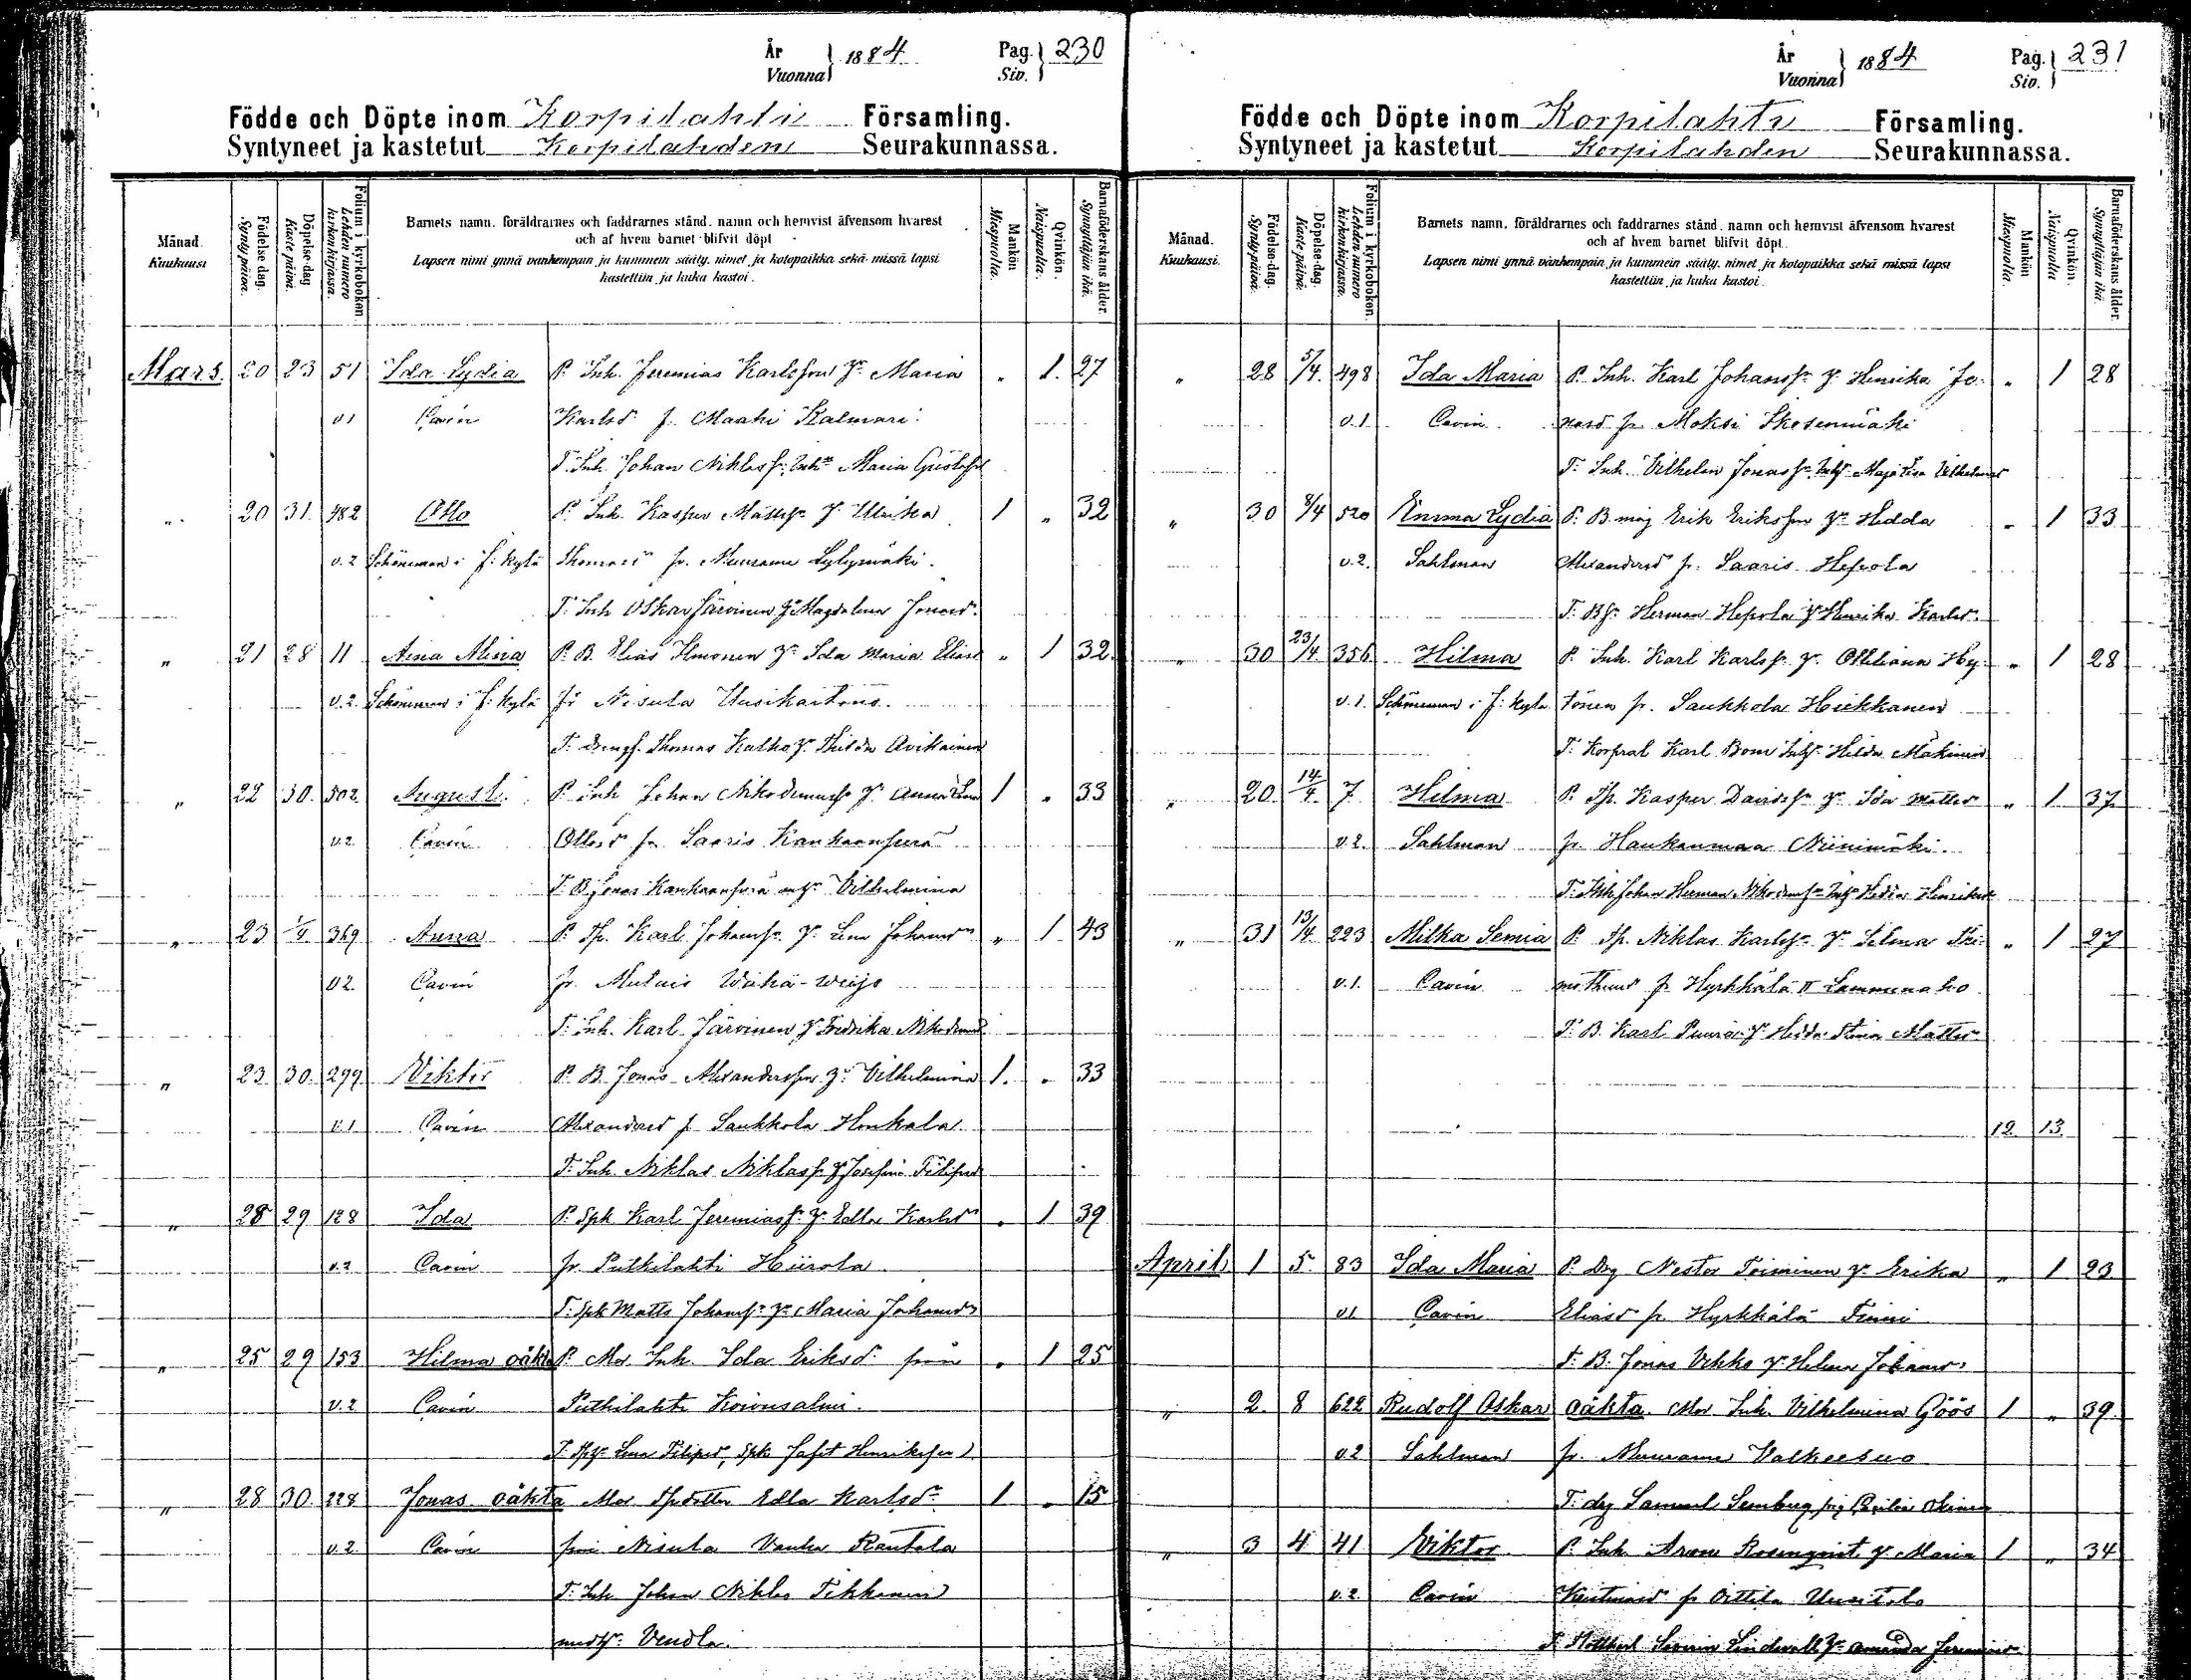 År
Vuonna } 1884
Pag.
Siv. } 230
Födde och Döpte inom Korpilahti Församling.
Syntyneet ja kastetut Korpilahden Seurakunnassa.
Månad.
Kuukausi
Födelse dag.
Syntypäivä.
Döpelse-dag
Kaste päivä.
Folium i kyrkoboken
Lehden numero kirkonkirjassa.
Barnets namn, föräldrarnes och faddrarnes stånd, namn och hemvist äfvensom hvarest
och af hvem barnet blifvit döpt
Lapsen nimi ynnä vanhempain ja kummein sääty, nimet ja kotopaikka sekä missä lapsi
kastettiin ja kuka kastoi.
Mankön
Miespuolta.
Qvinkön.
Naispuolta.
Barnaföderskans ålder.
Synnyttäjän ikä.
Mars. 20 23 51 Ida Lydia P. Inh. Jeremias Karlsson Maria " 1. 27
v.1 Cavén Karlsd fr. Maahi Kalmari
T. Inh. Johan Niklass. Maria
" 20 31. 482 Otto P. Inh. Kasper Ulrika 1 " 32
v.2 Schöneman i f: kylä fr. Muurame Sylymäki.
T. Inh Oskar Järvinen Magdalena Jonasd.
" 21 28 11 Aina Alina P. B. Elias Ilmonen Ida Maria Eliasd " 1 32
v.2. Schöneman i f: kylä fr Nisula Uusikartano.
T. Thomas Hilda Avikainen
" 22 30. 502. August. P. Inh Johan Anna Lena 1 " 33
v.2 Cavén Ottosd fr Saaris Kankaanperä
T. B Jonas Kankaanperä Vilhelmina
" 23 1/4 369 Anna P. Tp. Karl Johanss. Lena Johansd " 1 43
v.2. Cavén fr. Mutais
T. Inh. Karl Järvinen Fredrika
" 23 30. 299 Viktor P. B. Jonas Alexandersson Vilhelmina 1. " 33
v.1 Cavén Alexandersd fr Saukkola Honkala
T. Inh. Niklas Niklass. Josefina
" 28 29 128 Ida P. Spk Karl Jeremiass. Edla Karlsd " 1 39
v.2 Cavén fr. Putkilahti Hiirola
T. Spk Matts Johanss. Maria Johansd
" 25 29 153 Hilma oäkta P. Mor Inh. Ida Eriksd från " 1 25
v.2 Cavén Putkilahti Koivusalmi.
T. Lena Filipsd, Spk Jafet Henriksson
" 28 30. 228 Jonas oäkta Mor Edla Karlsd 1 " 15
v.2. Cavén från Nisula Rautala
T. Inh Johan Niklas Tikkanen
Vendla.
År
Vuonna } 1884
Pag.
Siv. } 231
Födde och Döpte inom Korpilahti Församling.
Syntyneet ja kastetut Korpilahden Seurakunnassa.
Månad.
Kuukausi.
Födelse-dag.
Syntypäivä.
Döpelse-dag.
Kaste päivä.
Folium i kyrkoboken.
Lehden numero kirkonkirjassa.
Barnets namn, föräldrarnes och faddrarnes stånd, namn och hemvist äfvensom hvarest
och af hvem barnet blifvit döpt.
Lapsen nimi ynnä vanhempain ja kummein sääty, nimet ja kotopaikka sekä missä lapsi
kastettiin ja kuka kastoi.
Mankön
Miespuolta.
Qvinkön.
Naispuolta
Barnaföderskans ålder.
Synnyttäjän ikä.
" 28 5/4. 498 Ida Maria P. Inh. Karl Johanss. Henrika Jo- " 1 28
v.1. Cavén nasd fr Moksi
T. Inh. Vilhelm Jonass. Maja Lisa Vilhelmsd
" 30 8/4 520 Emma Lydia P. B. måg Erik Eriksson Hedda " 1 33
v.2. Sahlman Alexandersd fr. Saaris Hepola
T. Herman Hepola Henrika Karlsd
" 30 23/4 356 Hilma P. Inh. Karl Karlss. Ottiliana Hy- " 1 28
v.1. Schöneman i f: kylä tönen fr. Saukkola Hiekkanen
T. Korpral Karl Bom Hilda Mäkinen
" 20. 14/4. 7 Hilma P. Tp. Kasper Davidss. Ida Mattsd " 1 37
v.2. Sahlman fr. Haukanmaa Niinimäki.
T. Johan Herman Hedda Henriksd
" 31 13/4 223 Milka Senia P. Tp. Niklas Karlss. Selma Thi- " 1 27
v.1. Cavén motheusd fr Hyrkkälä II
T. B. Karl Hedda Stina Mattsd
12 13
April 1 5 83 Ida Maria P. Drg Nestor Toiminen Erika " 1 23
v.1 Cavén Eliasd fr. Hyrkkälä Tinni
T. B. Jonas Vekko Helena Johansd
" 2. 8 622 Rudolf Oskar oäkta Mor Inh. Vilhelmina Göös 1 " 39.
v.2 Sahlman fr. Muurame Valkeesuo
T. drg Samuel
" 3 4 41 Viktor. P. Inh. Aron Rosenqvist Maria 1 " 34
v.2. Cavén fr Oittila Uusitalo
T. Severin Lindevall Amanda